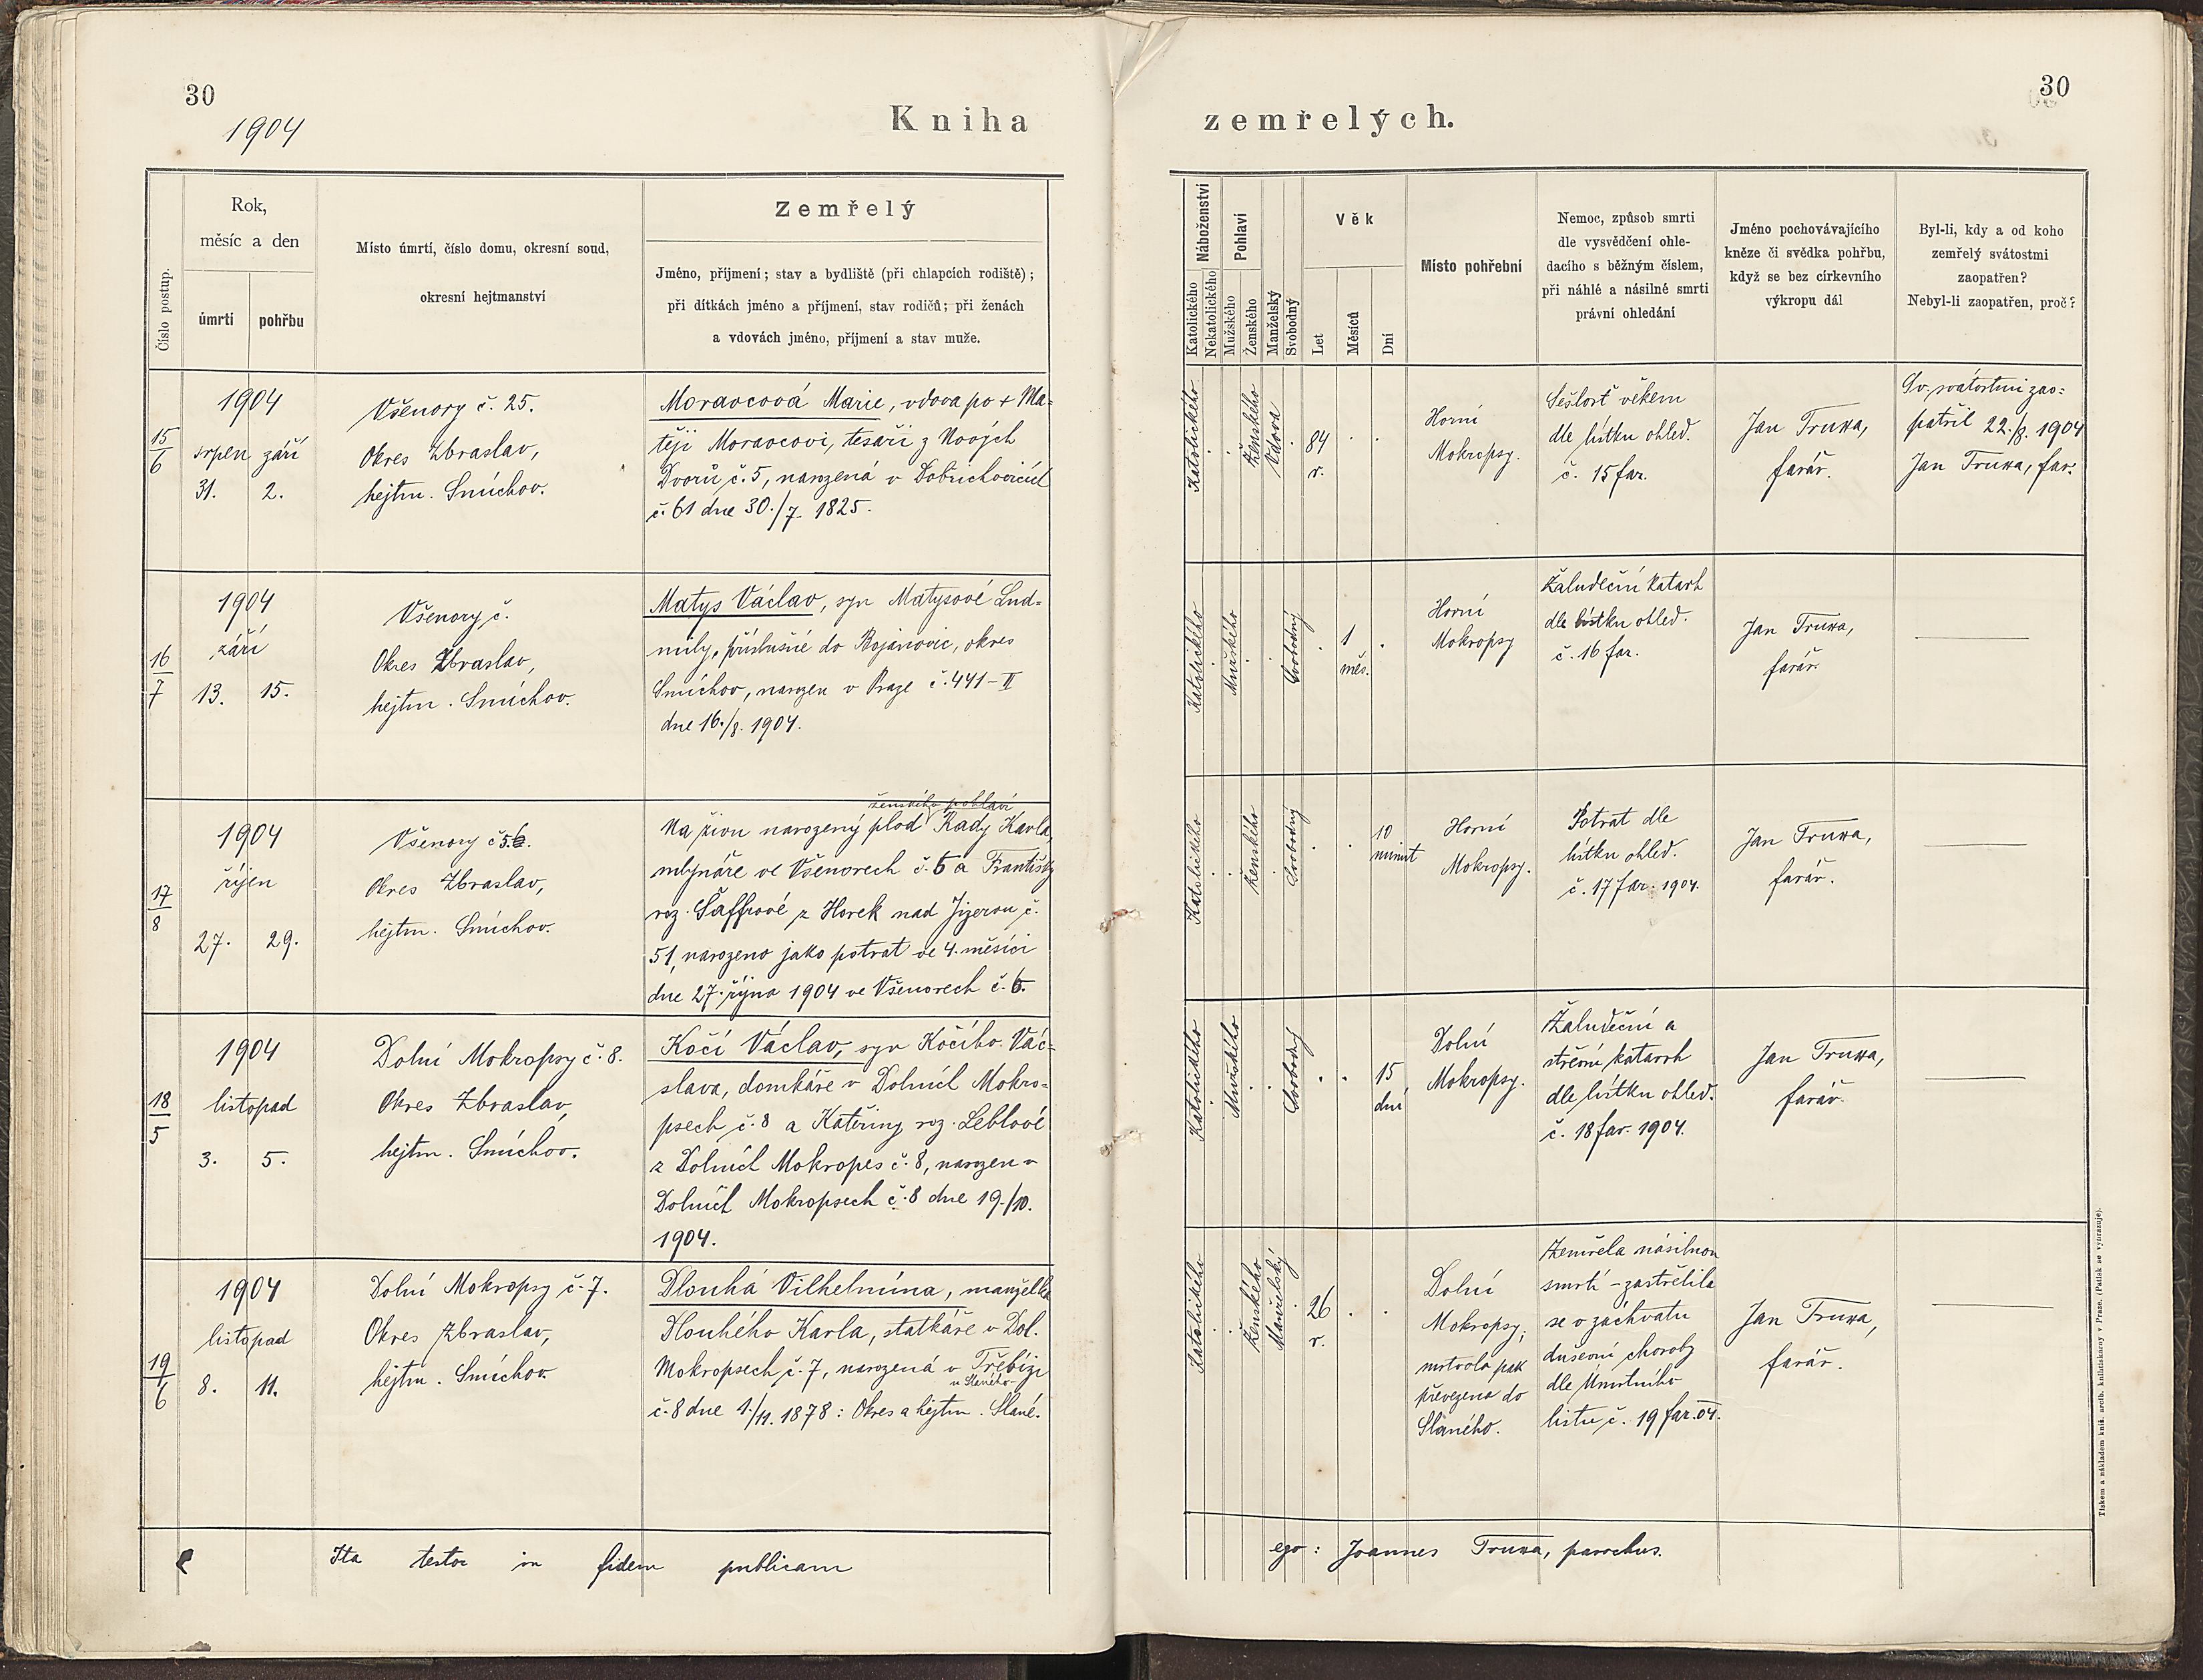 30
1904
Kniha
Číslo postup.
Rok,
měsíc a den
úmrtí
pohřbu
Místo úmrtí, číslo domu, okresní soud,
okresní hejtmanství
Zemřelý
Jméno, příjmení; stav a bydliště (při chlapcích rodiště);
při dítkách jméno a příjmení, stav rodičů; při ženách
a vdovách jméno, příjmení a stav muže.
15
6
1904
srpen září
31. 2.
Všenory č. 25.
Okres Zbraslav,
hejtm. Smíchov.
Moravcová Marie, vdova po + Ma=
těji Moravcovi, tesaři z Nových
Dvorů č. 5, narozená v Dobřichovicích
č. 61 dne 30./7. 1825.
16
7
1904
září
13. 15.
Všenory č.
Okres Zbraslav,
hejtm. Smíchov.
Matys Václav, syn Matysové Lud=
mily, příslušné do Bojanovic, okres
Smíchov, narozen v Praze č. 441-II
dne 16./8. 1904.
17
8
1904
říjen
27. 29.
Všenory č
Okres Zbraslav,
hejtm. Smíchov.
ženského pohlaví
Na živu narozený plod Rady Karla,
mlynáře ve Všenorech č. 6 a Františky
roz. Šaffrové z Horek nad Jizerou č.
51, narozeno jako potrat ve 4. měsíci
dne 27. října 1904 ve Všenorech č. 6.
18
5
1904
listopad
3. 5.
Dolní Mokropsy č. 8.
Okres Zbraslav,
hejtm. Smíchov.
Kočí Václav, syn Kočího Vác=
slava, domkáře v Dolních Mokro=
psech č. 8 a Kateřiny roz. Leblové
z Dolních Mokropes č. 8, narozen v
Dolních Mokropsech č. 8 dne 19./10.
1904.
19
6
1904
listopad
8. 11.
Dolní Mokropsy č. 7.
Okres Zbraslav,
hejtm. Smíchov.
Dlouhá Vilhelmína, manželka
Dlouhého Karla, statkáře v Dol.
Mokropsech č. 7, narozená v Třebízi
u Slaného
č. 8 dne 1./11. 1878: Okres a hejtm. Slané.
Ita testor in fidem publicam
30
zemřelých.
Náboženství
Katolického
Nekatolického
Pohlaví
Mužského
Ženského
Manželský
Svobodný
Věk
Let
Měsíců
Dní
Místo pohřební
Nemoc, způsob smrti
dle vysvědčení ohle-
dacího s běžným číslem,
při náhlé a násilné smrti
právní ohledání
Jméno pochovávajícího
kněze či svědka pohřbu,
když se bez církevního
výkropu dál
Byl-li, kdy a od koho
zemřelý svátostmi
zaopatřen?
Nebyl-li zaopatřen, proč?
Katolického
Ženského
Vdova
84
r.
Horní
Mokropsy.
Sešlost věkem
dle lístku ohled.
č. 15 far.
Jan Truxa,
farář.
Sv. svátostmi zao=
patřil 22./8. 1904
Jan Truxa, far.
Katolického
Mužského
Svobodný
1
měs.
Horní
Mokropsy
Žaludeční katarh
dle lístku ohled.
č. 16 far.
Jan Truxa,
farář
Katolického
Ženského
Svobodný
10
minut
Horní
Mokropsy.
Potrat dle
lístku ohled.
č. 17 far. 1904.
Jan Truxa,
farář.
Katolického
Mužského
Svobodný
15
dní
Dolní
Mokropsy.
Žaludeční a
střevní katarrh
dle lístku ohled.
č. 18 far. 1904.
Jan Truxa,
farář.
Katolického
Ženského
Manželský
26
r.
Dolní
Mokropsy;
mrtvola pak
převezena do
Slaného.
Zemřela násilnou
smrtí - zastřelila
se v záchvatu
duševní choroby
dle Úmrtního
listu č. 19 far. 04.
Jan Truxa,
farář.
ego: Joannes Truxa, parochus.
Tiskem a nákladem kníž. arcib. knihtiskárny v Praze. (Patisk se vyhrazuje).